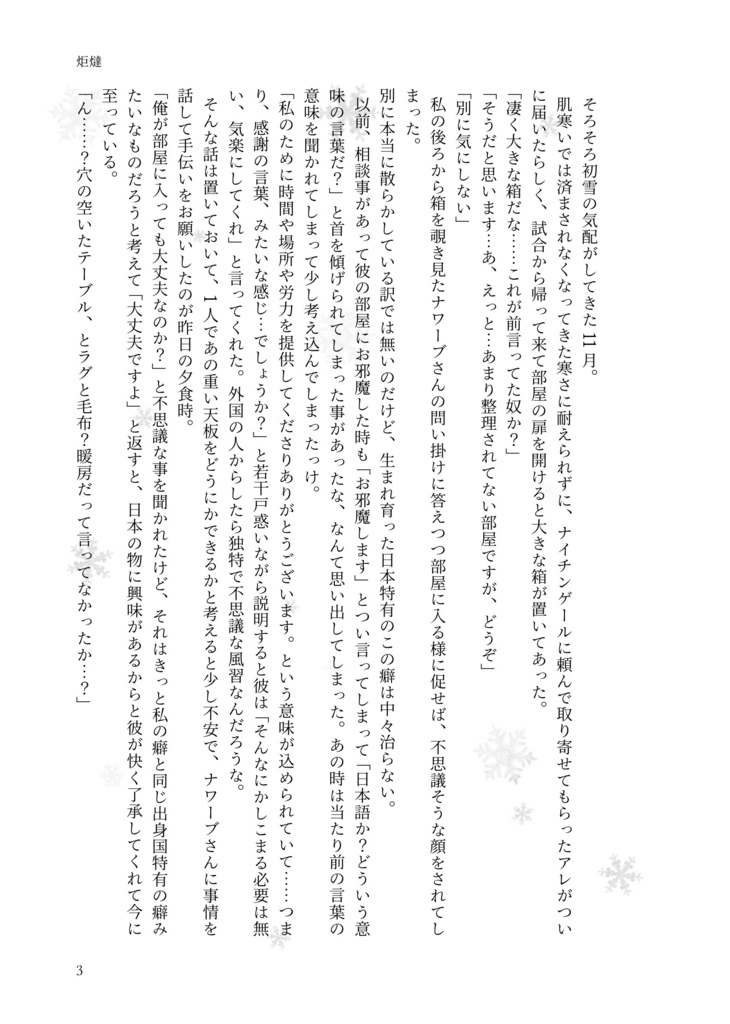 炬燵
そろそろ初雪の気配がしてきた11月。
肌寒いでは済まされなくなってきた寒さに耐えられずに、ナイチンゲールに頼んで取り寄せてもらったアレがつい
に届いたらしく、試合から帰って来て部屋の扉を開けると大きな箱が置いてあった。
「凄く大きな箱だな……これが前言ってた奴か？」
「そうだと思います…あ、えっと…あまり整理されてない部屋ですが、どうぞ」
「別に気にしない」
私の後ろから箱を覗き見たナワーブさんの問い掛けに答えつつ部屋に入る様に促せば、不思議そうな顔をされてし
まった。
別に本当に散らかしている訳では無いのだけど、生まれ育った日本特有のこの癖は中々治らない。
以前、相談事があって彼の部屋にお邪魔した時も「お邪魔します」とつい言ってしまって「日本語か？どういう意
味の言葉だ？」と首を傾げられてしまった事があったな、なんて思い出してしまった。あの時は当たり前の言葉の
意味を聞かれてしまって少し考え込んでしまったっけ。
「私のために時間や場所や労力を提供してくださりありがとうございます。という意味が込められていて……つま
り、感謝の言葉、みたいな感じ…でしょうか？」と若干戸惑いながら説明すると彼は「そんなにかしこまる必要は無
い、気楽にしてくれ」と言ってくれた。外国の人からしたら独特で不思議な風習なんだろうな。
そんな話は置いておいて、1人であの重い天板をどうにかできるかと考えると少し不安で、ナワーブさんに事情を
話して手伝いをお願いしたのが昨日の夕食時。
「俺が部屋に入っても大丈夫なのか？」と不思議な事を聞かれたけど、それはきっと私の癖と同じ出身国特有の癖み
たいなものだろうと考えて「大丈夫ですよ」と返すと、日本の物に興味があるからと彼が快く了承してくれて今に
至っている。
「ん……？穴の空いたテーブル、とラグと毛布？暖房だって言ってなかったか…？」
3